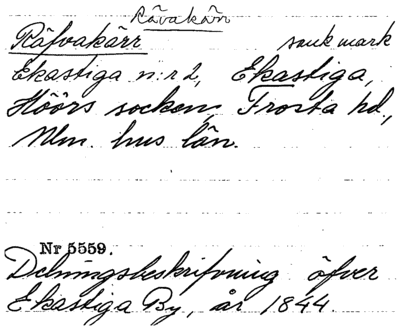 Rävakärr
Räfvakärr sankmark
Ekastiga n:r 2, Ekastiga,
Höörs socken, Frosta hd.,
Mlm. hus län.
Nr 5559.
Delningsbeskrifvning öfver
Ekastiga By, år 1844.